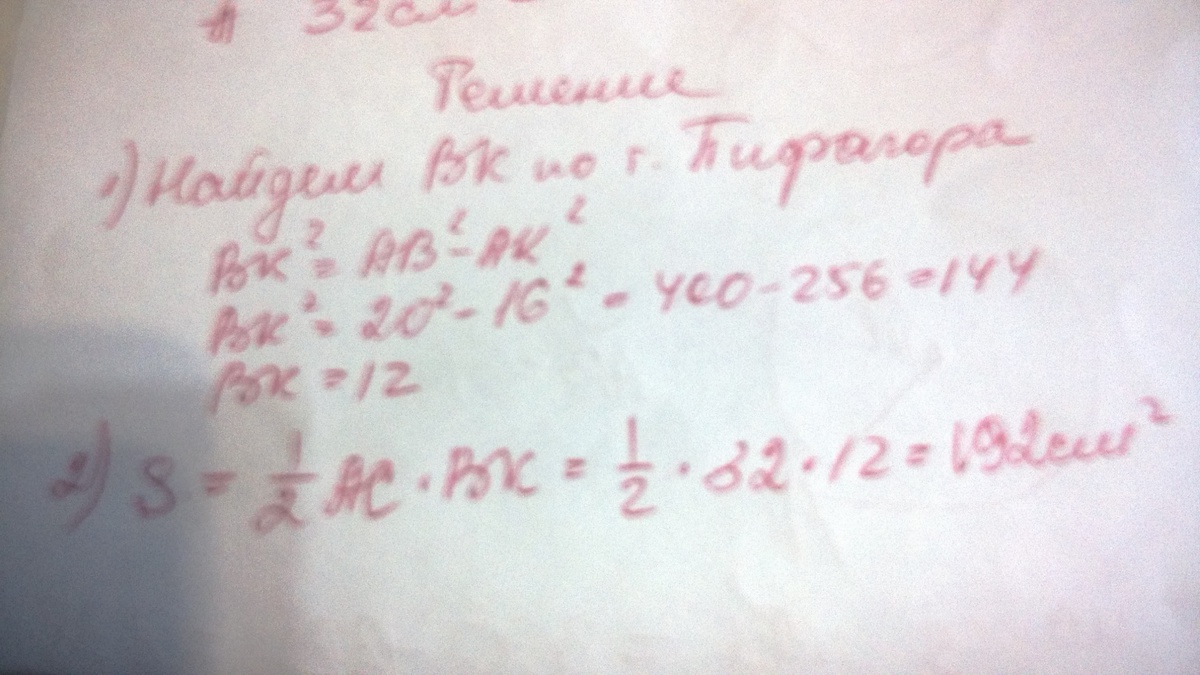 A 32см
Решение
1) Найдем ВК по т. Пифагора
ВК² = АВ² - АК²
ВК² = 20² - 16² = 400 - 256 = 144
ВК = 12
2) S = 1/2 АС · ВК = 1/2 · 32 · 12 = 192см²